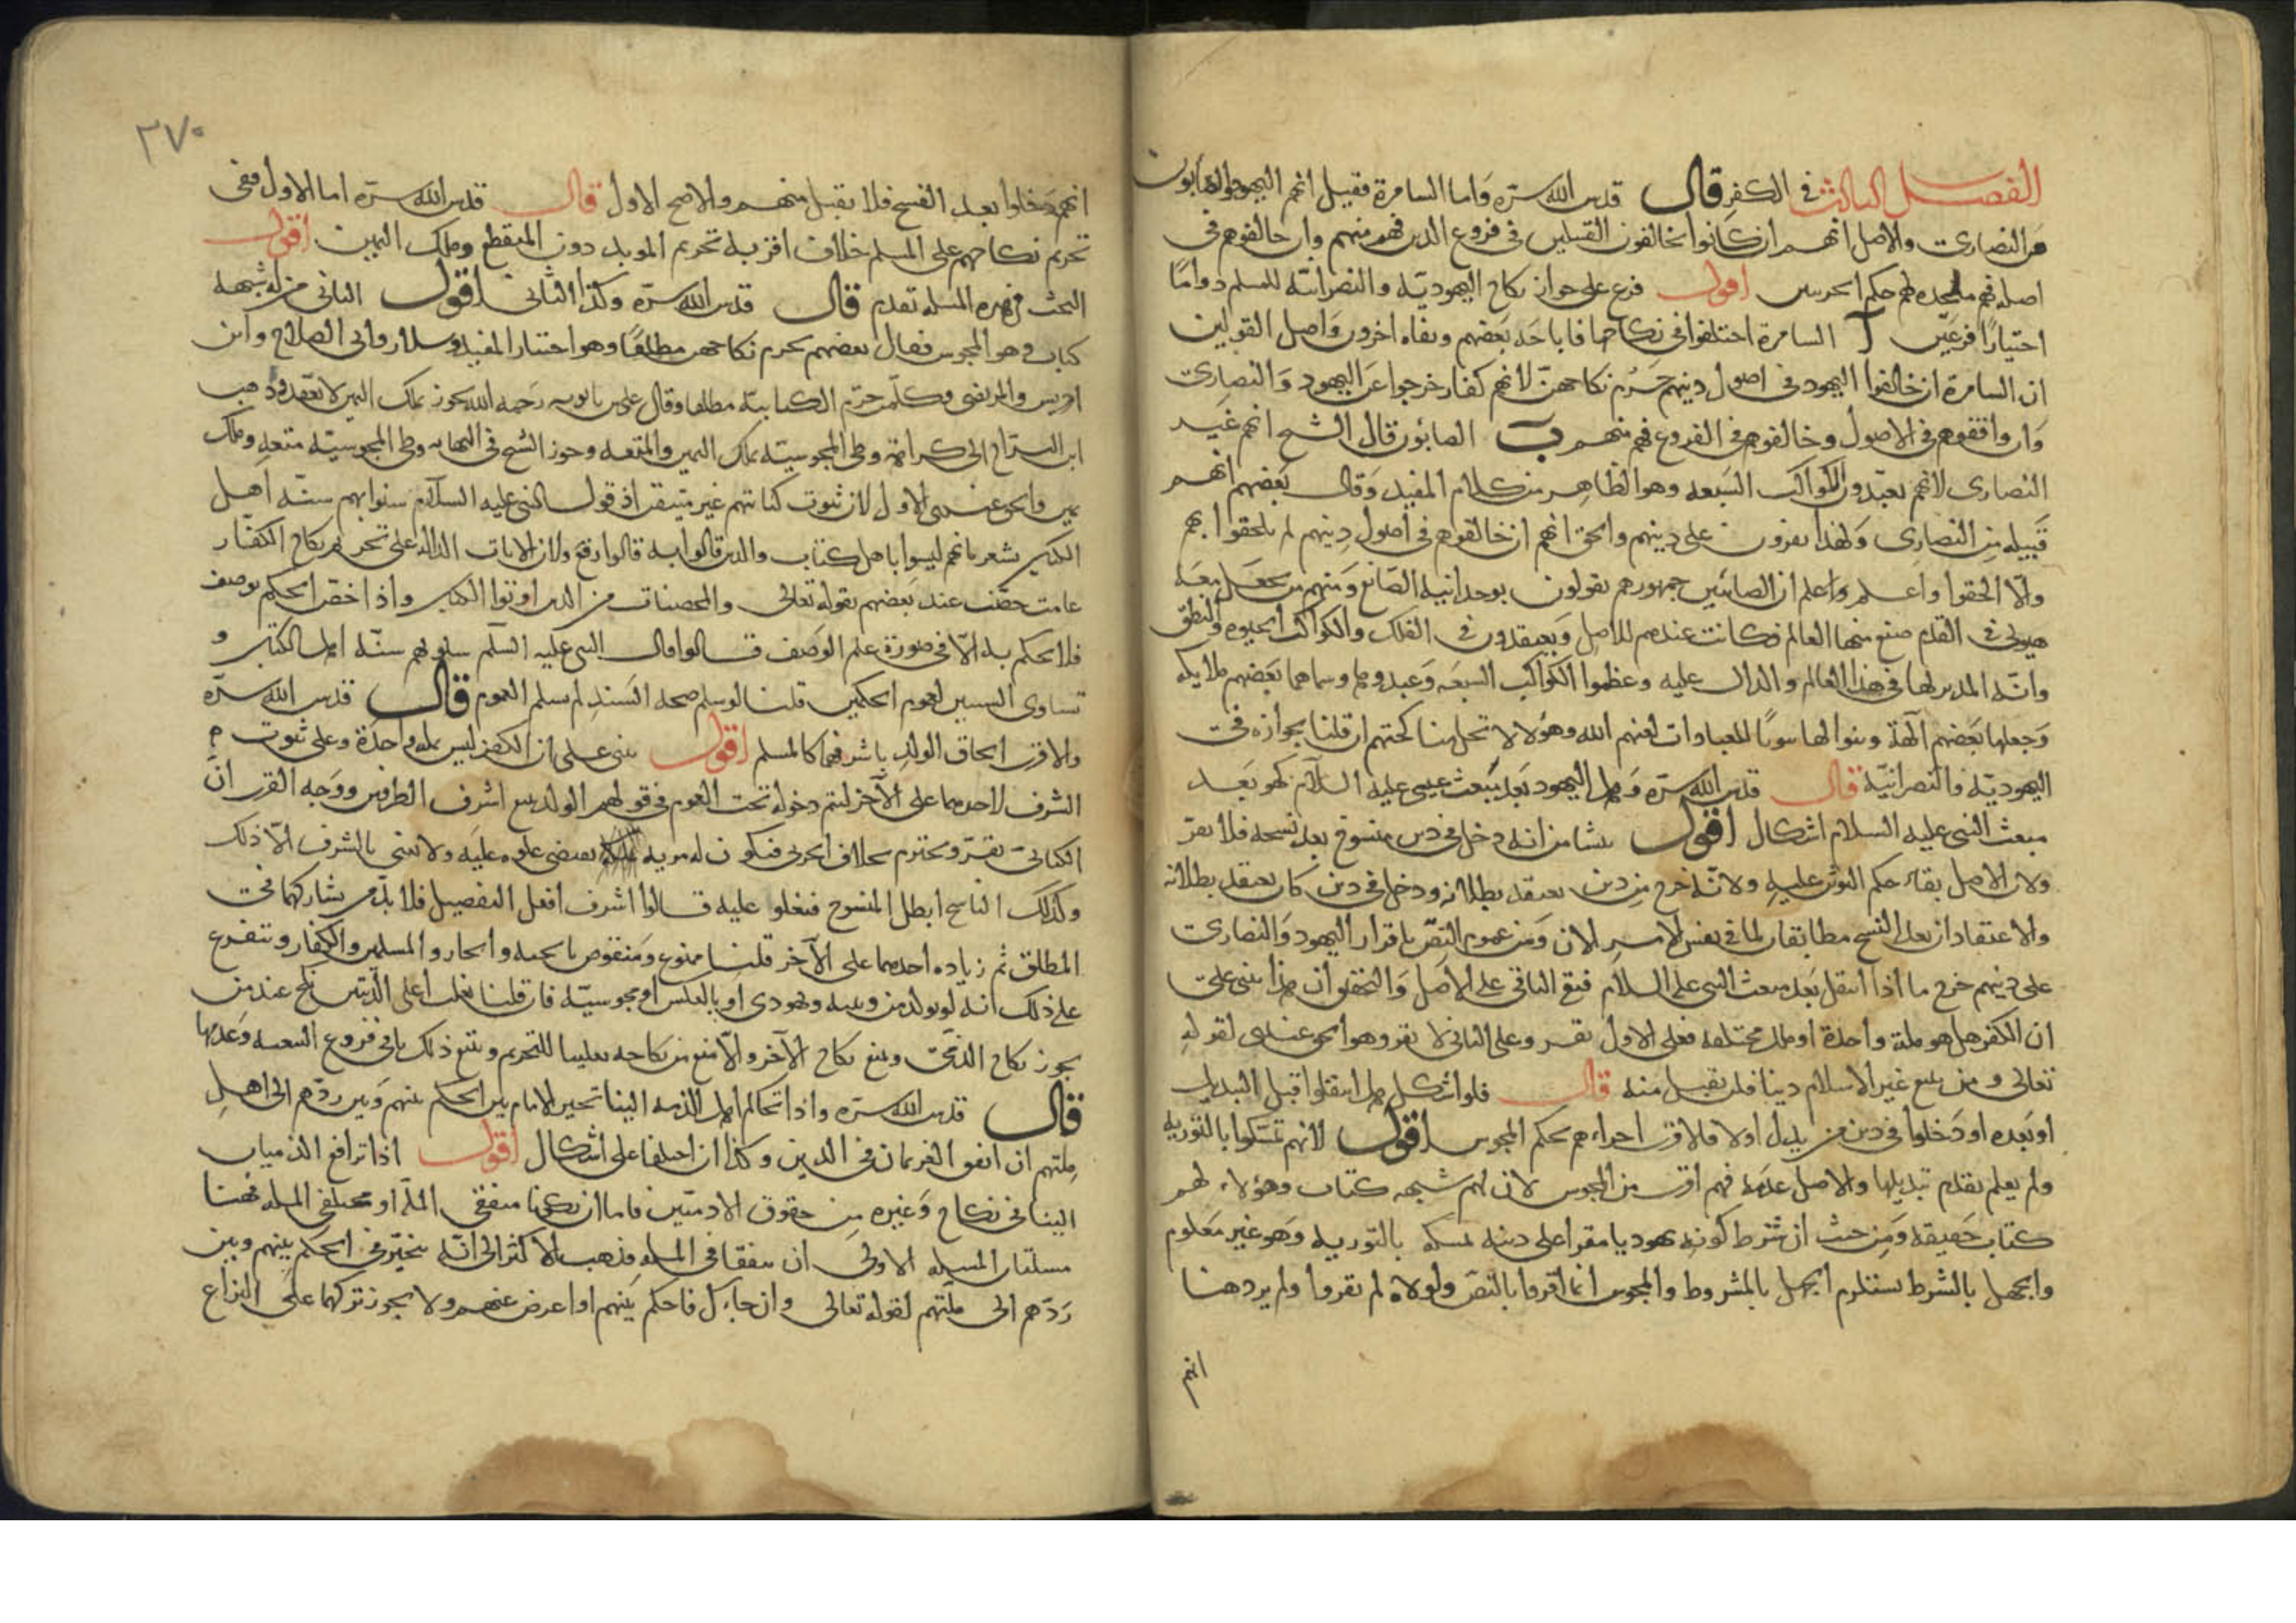 الفصل الثالث في الكفر قال قدس الله سره واما السامرة فقيل انهم اليهود والصابون
من النصارى والاصل انهم ان كانوا يخالفون القبيلين في فروع الدين فهم منهم وان خالفوهم في
اصله فهم ملحدة لهم حكم الحربيين اقول فرع على جواز نكاح اليهودية والنصرانية للمسلم دواما
اختيارا فرعين آ السامرة اختلفوا في نكاحها فاباحه بعضهم ونفاه اخرون واصل القولين
ان السامرة ان خالفوا اليهود في اصول دينهم حرم نكاحهن لانهم كفار خرجوا عن اليهود والنصارى
وان وافقوهم في الاصول وخالفوهم في الفروع فهم منهم ب الصابئون قال الشيخ انهم غير
النصارى لانهم يعبدون الكواكب السبعة وهو الظاهر من كلام المفيد وقال بعضهم انهم
قبيلة من النصارى ولهذا يقرون على دينهم والحق انهم ان خالفوهم في اصول دينهم لم يلحقوا بهم
والا الحقوا واعلم واعلم ان الصابئين جمهورهم يقولون بوحدانية الصانع ومنهم من يجعل معه
هيولى في القدم صنع منها العالم فكانت عندهم للاصل ويعتقدون في الفلك والكواكب الحيوة والنطق
وانه المدبر لما في هذا العالم والدال عليه وعظموا الكواكب السبعة وعبدوهما وسماهما بعضهم ملايكة
وجعلها بعضهم آلهة وبنوا لها بيوتا للعبادات لعنهم الله وهؤلاء لا تحل مناكحتهم ان قلنا بجوازه في
اليهودية والنصرانية قال قدس الله سره وهل اليهود بعد مبعث عيسى عليه السلام كهو بعد
مبعث النبي عليه السلام اشكال اقول ينشا من انه دخل في دين منسوخ بعد نسخه فلا يقر
ولان الاصل بقاء حكم التوثن عليه ولانه خرج من دين يعتقد بطلانه ودخل في دين كان يعتقد بطلانه
والاعتقادان بعد النسخ مطابقان لما في نفس الامر الان ومن عموم النص باقرار اليهود والنصارى
على دينهم خرج ما اذا انتقل بعد مبعث النبي عليه السلام فبقي الباقي على الاصل والتحقيق ان هذا يبنى على
ان الكفر هل هو ملة واحدة او ملل مختلفة فعلى الاول يقر وعلى الثاني لا يقر وهو الحق عندي لقوله
تعالى ومن يبتغ غير الاسلام دينا فلن يقبل منه قال فلو اشكل هل انتقلوا قبل التبديل
او بعده او دخلوا في دين من بدل اولا فالاقرب اجراءهم بحكم المجوس اقول لانهم تمسكوا بالتورية
ولم يعلم تقدم تبديلها والاصل عدمه فهم اقرب من المجوس لان لهم شبهه كتاب وهؤلاء لهم
كتاب حقيقة ومن حيث ان شرط كونه يهوديا مقرا على دينه تمسكه بالتورية وهو غير معلوم
والجهل بالشرط يستلزم الجهل بالمشروط والمجوس انما اقروا بالنص ولولاه لم يقروا ولم يرد هنا
انهم
٣٧٠
انهم دخلوا بعد الفسخ فلا يقبل منهم والاصح الاول قال قدس الله سره اما الاول ففي
تحريم نكاحهم على المسلم خلاف اقربه تحريم المويد دون المنقطع وملك اليمين اقول
البحث في هذه المسئله تقدم قال قدس الله سره وكذا الثاني اقول الثاني من له شبهة
كتاب وهو المجوس فقال بعضهم يحرم نكاحهن مطلقا وهو اختيار المفيد وسلار وابي الصلاح وابن
ادريس والمرتضى وكل من حرم الكتابية مطلقا وقال علي بن بابويه رحمه الله يجوز بملك اليمين لا بعقد وذهب
ابن البراج الى كراهة وطي المجوسية بملك اليمين والمتعة وجوز الشيخ في النهاية وطي المجوسية متعة وملك
يمين والحق عندي الاول لان ثبوت كتابتهم غير متيقن اذ قول النبي عليه السلام سنوا بهم سنة اهل
الكتاب يشعر بانهم ليسوا باهل كتاب والذين قالوا به قالوا رفع ولان الايات الدالة على تحريم نكاح الكفار
عامة خصت عند بعضهم بقوله تعالى والمحصنات من الذين اوتوا الكتاب واذا خص الحكم بوصف
فلا يحكم به الا في صورة علم الوصف قالوا قال النبي عليه السلم سنوا بهم سنة اهل الكتاب و
تساوى السببين لعموم الحكمين قلنا لو سلم صحة السند لم يسلم العموم قال قدس الله سره
والاقرب الحاق الولد باشرفهما كالمسلم اقول يبنى على ان الكفر ليس ملة واحدة وعلى ثبوت
الشرف لاحدهما على الآخر ليتم دخوله تحت العموم في قولهم الولد يتبع اشرف الطرفين ووجه القرب ان
الكتابي يقر ويحترم بخلاف الحربي فيكون له مزية يقتضي علوه عليه ولا نعني بالشرف الا ذلك
وكذلك الناسخ ابطل المنسوخ فيعلو عليه قالوا اشرف افعل التفضيل فلا بد من تشاركهما في
المطلق ثم زياده احدهما على الآخر قلنا ممنوع ومنقوض بالجنة والنار والمسلمين والكفار ويتفرع
على ذلك انه لو تولد من وثنية ويهودي او بالعكس او مجوسية فان قلنا يغلب اعلى الدينين نكح عند من
يجوز نكاح الذمي ويتبع نكاح الآخر والا منع من نكاحه تغليبا للتحريم ويتبع ذلك باقي فروع التبعية وعدمها
قال قدس الله سره واذا تحاكم اهل الذمة الينا تخير الامام بين الحكم بينهم وبين ردهم الى اهل
ملتهم ان اتفق الغريمان في الدين وكذا ان اختلفا على اشكال اقول اذا ترافع الذميان
الينا في نكاح وغيره من حقوق الادميين فاما ان يكونا متفقي الملة او مختلفي الملة فهنا
مسئلتان المسئلة الاولى ان يتفقا في الملة فذهب الاكثر الى انه يتخير في الحكم بينهم وبين
ردهم الى ملتهم لقوله تعالى وان جاءك فاحكم بينهم او اعرض عنهم ولا يجوز تركهما على النزاع